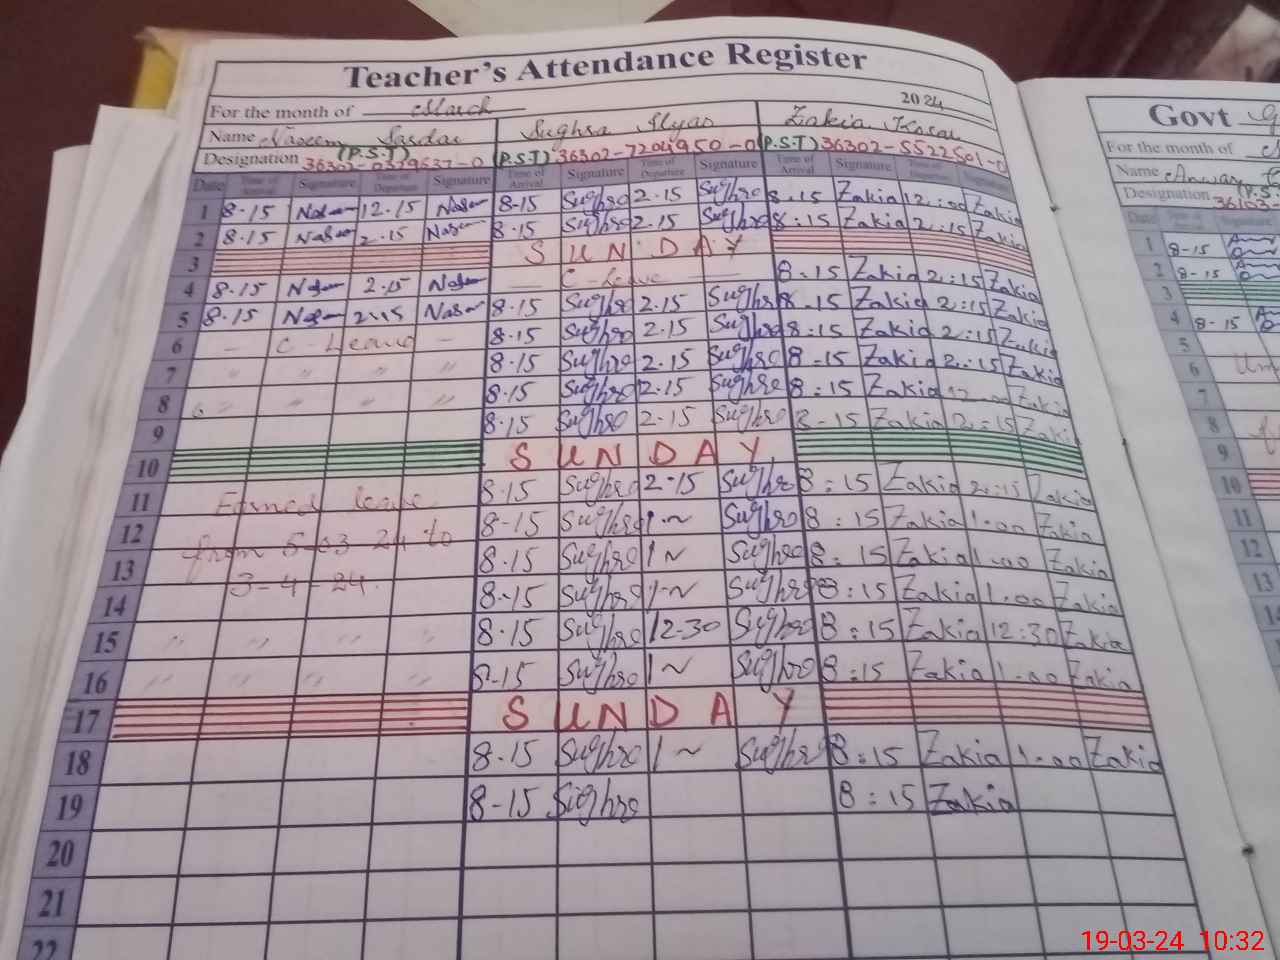 Teacher's Attendance Register
For the month of March 2024
Name Naseem Sughra Ilyas Zakia
Designation (P.S.T) (P.S.T) (P.S.T)
Date Time of Arrival Signature Time of Departure Signature Time of Arrival Signature Time of Departure Signature Time of Arrival Signature
1 8-15 12.15 8-15 Sughra 2.15 Sughra 8.15 Zakia 12:00 Zakia
2 8-15 2.15 8-15 Sughra 2.15 Sughra 8:15 Zakia 2:15 Zakia
3 SUNDAY
4 8.15 2.15 C-Leave 8.15 Zakia 2:15 Zakia
5 8.15 2.15 8-15 Sughra 2.15 Sughra 8.15 Zakia 2:15 Zakia
6 C-Leave 8-15 Sughra 2.15 Sughra 8:15 Zakia 2:15 Zakia
7 " " " " 8-15 Sughra 2.15 Sughra 8-15 Zakia 2:15 Zakia
8 " " " " 8.15 Sughra 2.15 Sughra 8:15 Zakia Zakia
9 8.15 Sughra 2-15 Sughra 8-15 Zakia 2:15 Zakia
10 SUNDAY
11 Earned leave 8.15 Sughra 2.15 Sughra 8:15 Zakia 2:15 Zakia
12 from 5-03-24 to 8-15 Sughra 1~ Sughra 8:15 Zakia 1.00 Zakia
13 3-4-24. 8.15 Sughra 1~ Sughra 8:15 Zakia 1.00 Zakia
14 8-15 Sughra 1~ Sughra 8:15 Zakia 1.00 Zakia
15 " " " " 8.15 Sughra 12-30 Sughra 8:15 Zakia 12:30 Zakia
16 " " " " 8-15 Sughra 1~ Sughra 8:15 Zakia 1.00 Zakia
17 SUNDAY
18 8-15 Sughra 1~ Sughra 8:15 Zakia 1.00 Zakia
19 8-15 Sughra 8:15 Zakia
20
21
22
Govt
For the month of
Name Anwar
Designation (P.S.
Date
1 8-15
2 8-15
3
4 8-15
5
6
7
8
9
10
11
12
13
19-03-24 10:32